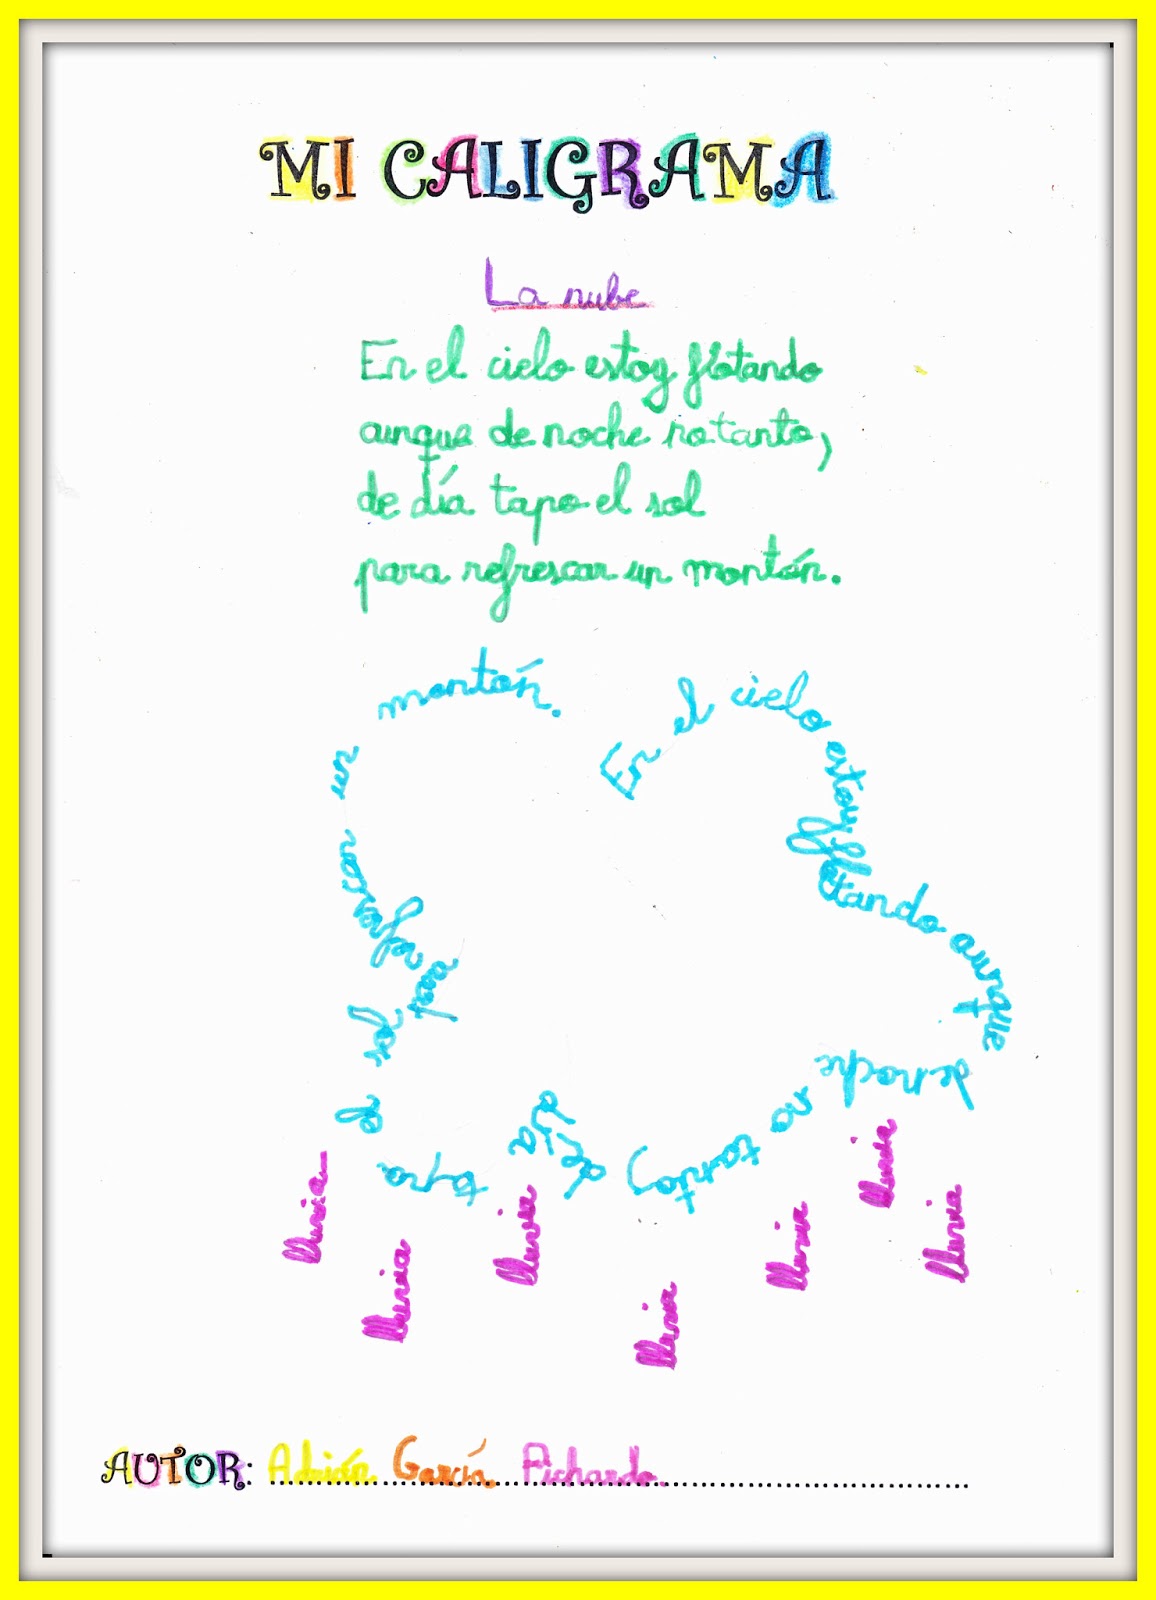 MI CALIGRAMA
La nube
En el cielo estoy flotando
aunque de noche no tanto,
de día tapo el sol
para refrescar un montón.
En el cielo estoy flotando aunque de noche no tanto, de día tapo el sol para refrescar un montón.
lluvia
lluvia
lluvia
lluvia
lluvia
lluvia
lluvia
AUTOR: Adrián García Pichardo